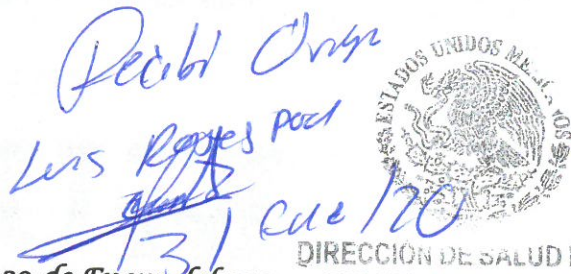 Recibí Orign
Luis Reyes
31 Ene / 20
ESTADOS UNIDOS ME
OS
DIRECCIÓN DE SALUD
de Enero del